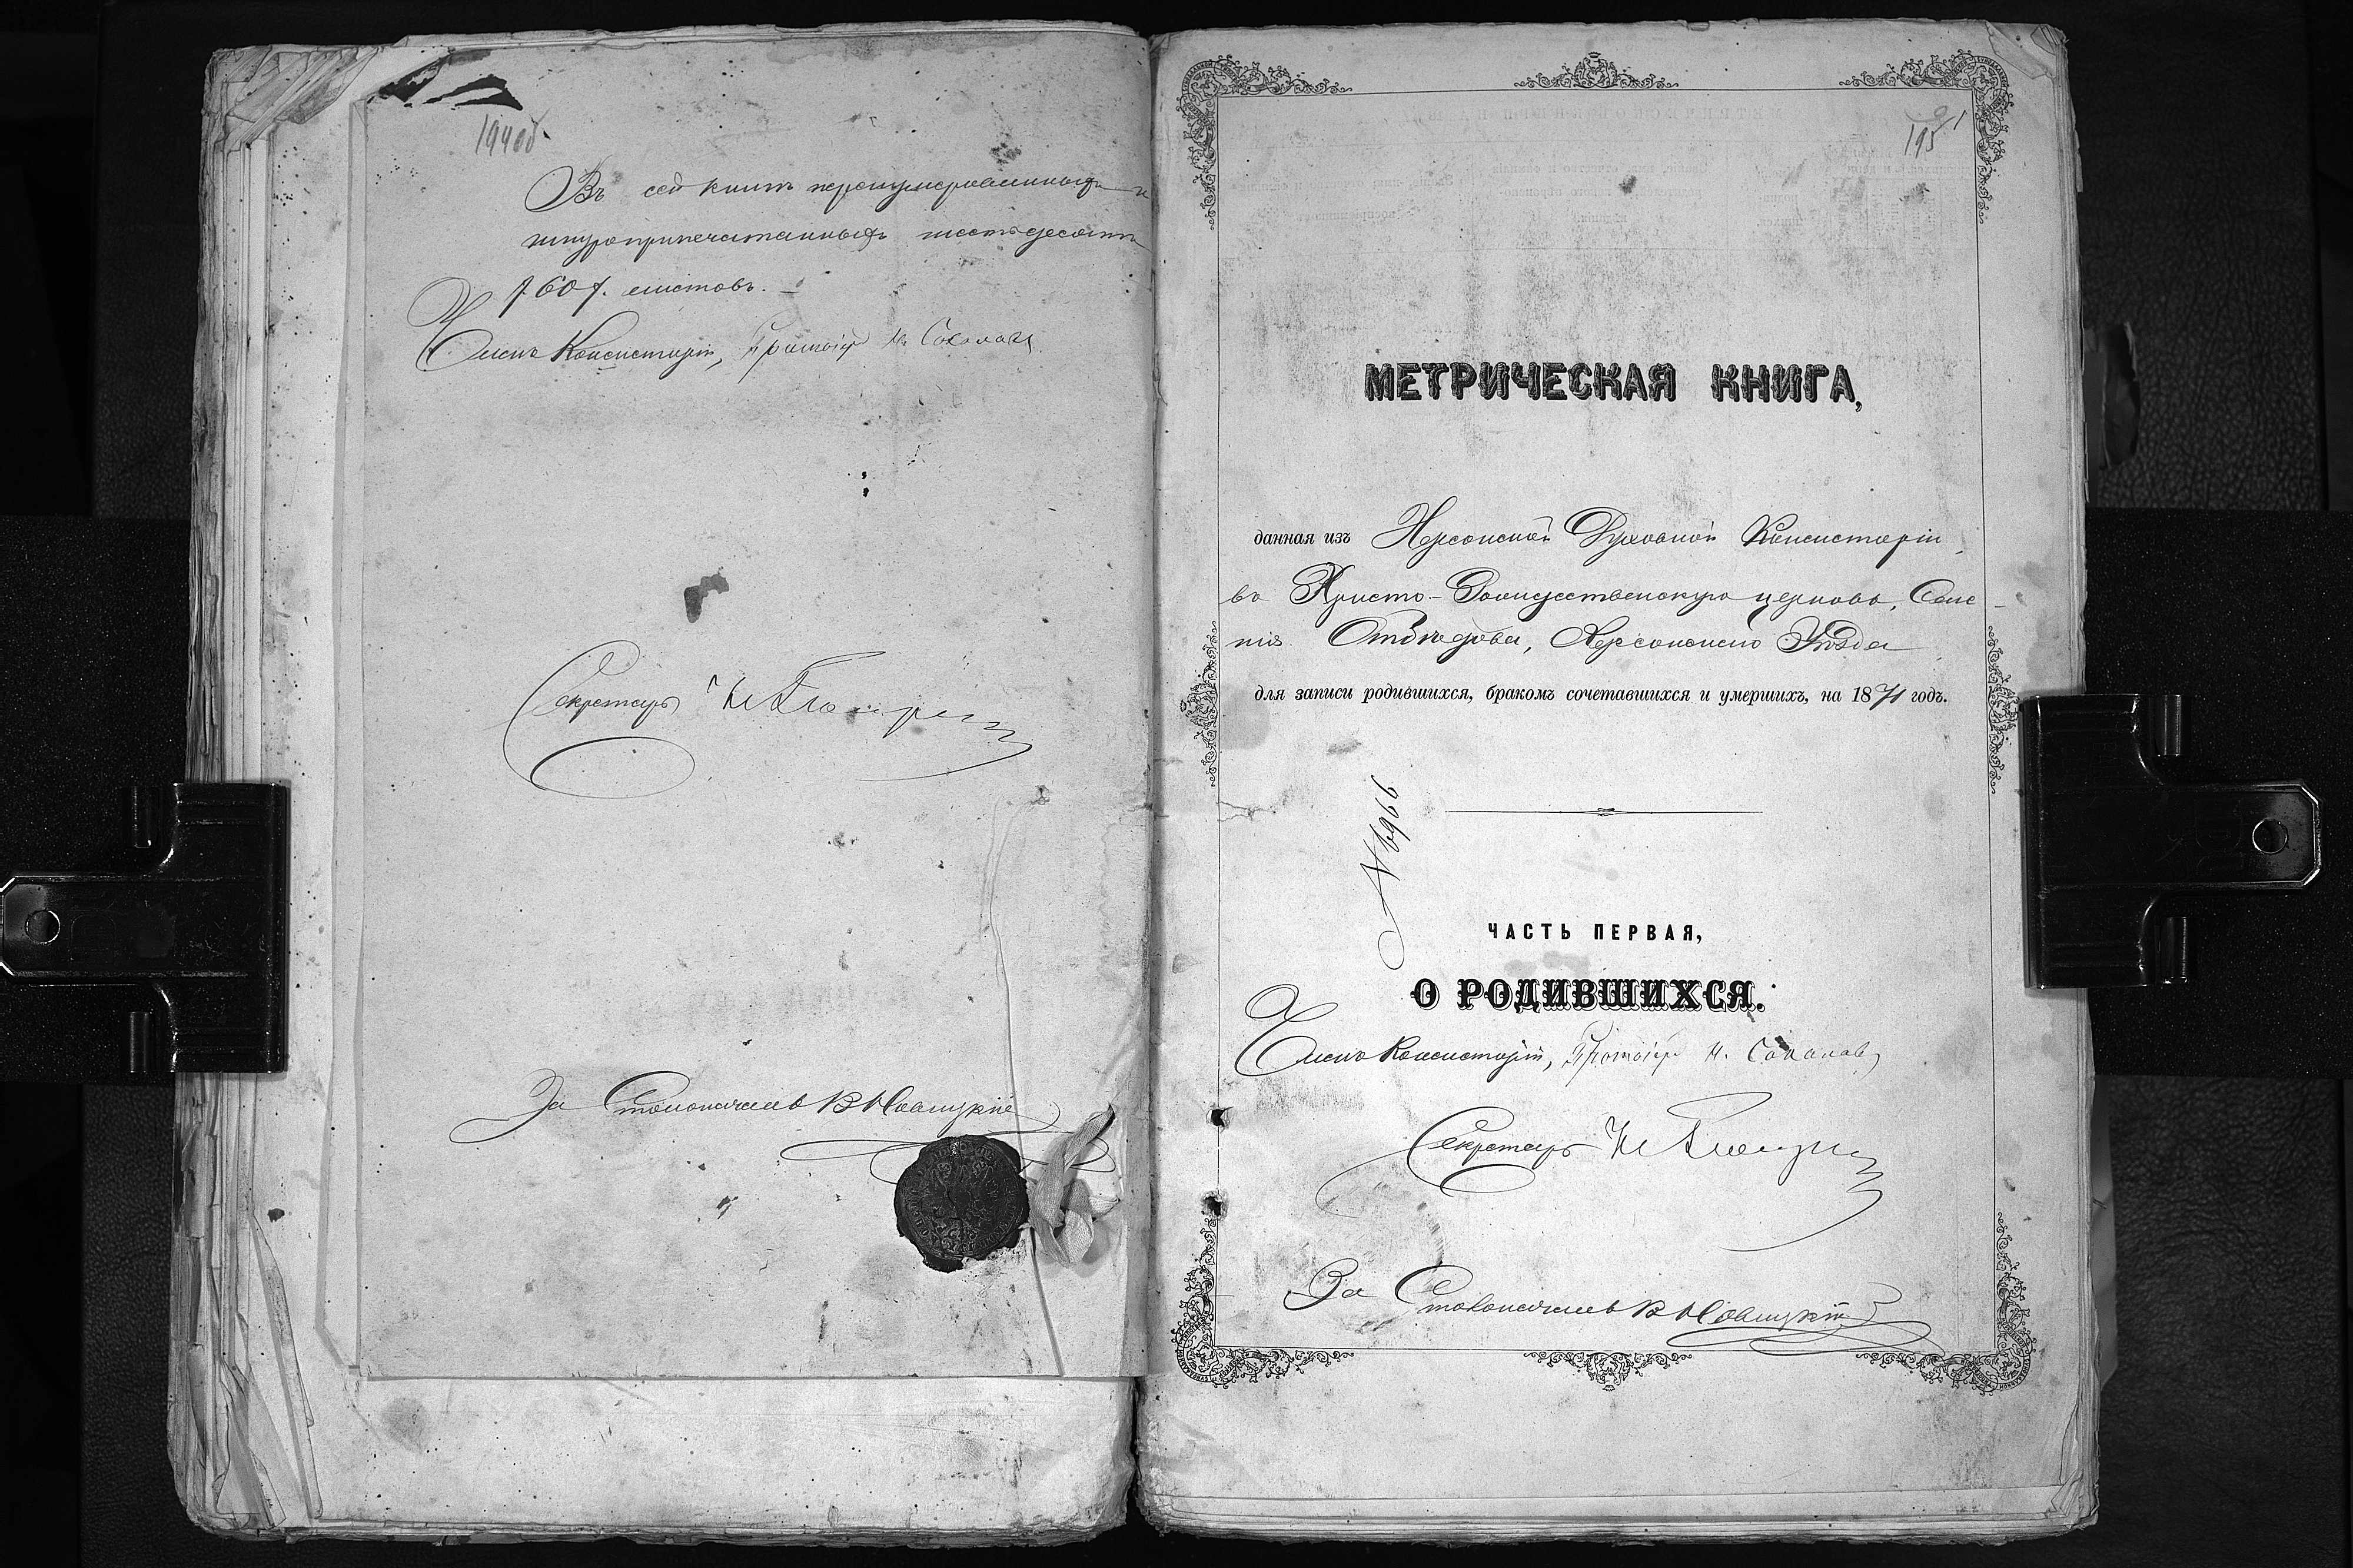 194об.
Въ сей книгѣ перенумерованныхъ и
шнуроприпечатанныхъ шестьдесятъ
/60/. листовъ. –
Членъ Консисторіи, Протоіер. Н. Соколовъ
Секретарь
За Столоначал.
195
1
МЕТРИЧЕСКАЯ КНИГА,
данная изъ Херсонской Духовной Консисторіи
въ Христо-Рождественскую церковь, Селе-
нія Отбѣдова, Херсонскаго Уѣзда
для записи родившихся, бракомъ сочетавшихся и умершихъ, на 1871 годъ.
№ 6966
ЧАСТЬ ПЕРВАЯ,
О РОДИВШИХСЯ.
Членъ Консисторіи, Протоіер. Н. Соколовъ
Секретарь
За Столоначал.